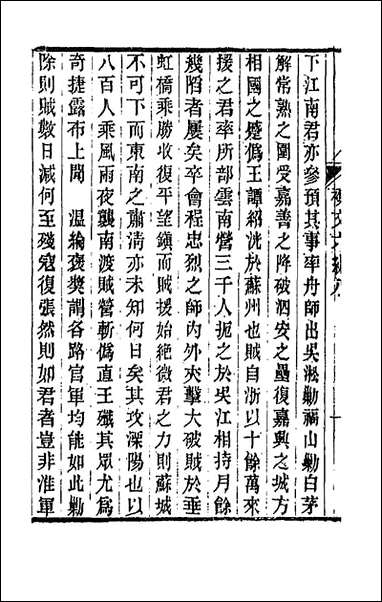 下江南君亦參預其事率舟師出吳淞勦福山勦白茅
解常熟之圍受嘉善之降破泗安之壘復嘉興之城方
相國之蹙僞王譚紹洸於蘇州也賊自浙以十餘萬來
援之君率所部雲南營三千人扼之於吳江相持月餘
幾陷者屢矣卒會程忠烈之師內外夾擊大破賊於垂
虹橋乘勝收復平望鎮而賊援始絕微君之力則蘇城
不可下而東南之肅清亦未知何日矣其攻溧陽也以
八百人乘風雨夜襲南渡賊營斬僞直王殲其眾尤爲
奇捷露布上聞　溫綸褒獎謂各路官軍均能如此勦
除則賊數日減何至殘寇復張然則如君者豈非淮軍